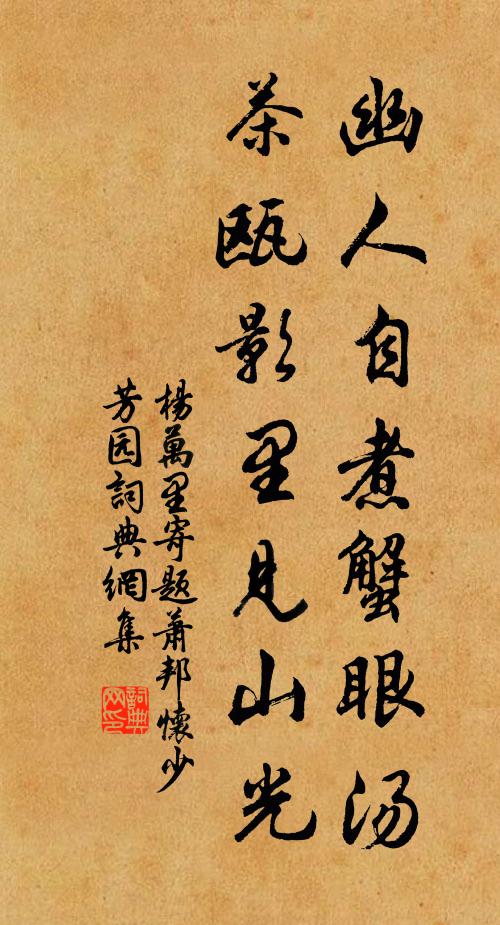 幽人自煮蟹眼汤
茶瓯影里见山光
楊萬里寄题萧邦懷少
芳园詞典網集
詞典网印